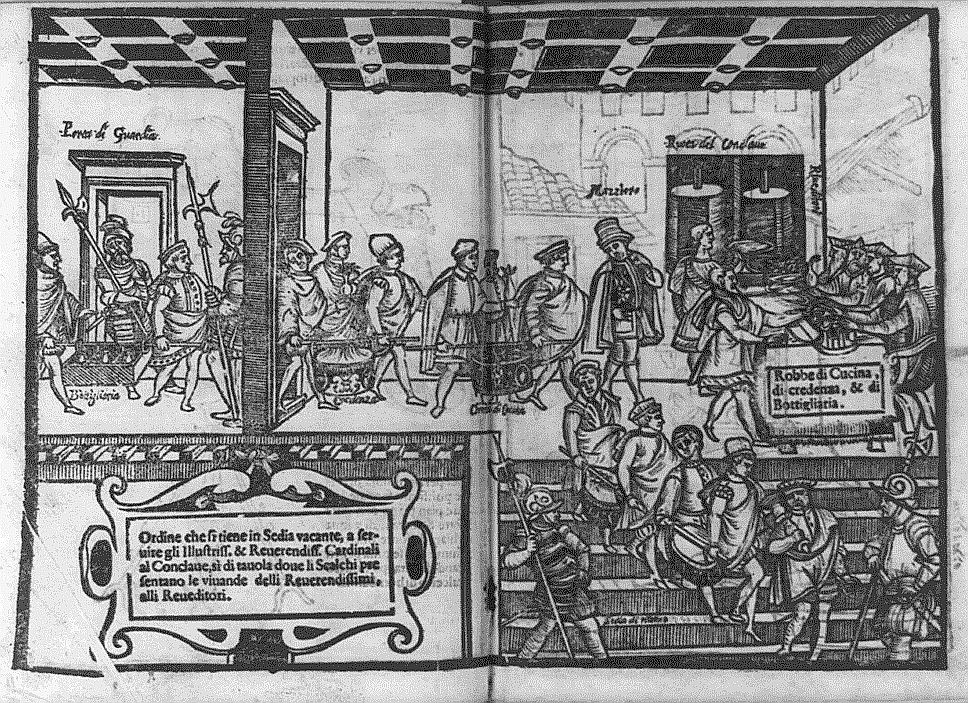 Porta di Guardia.
Mazziero
Ruote del Conclaue
Bottiglieria
Credenza
Robbe di Cucina,
di credenza, & di
Bottigliaria.
Ordine che si tiene in Sedia vacante, a ser-
uire gli Illustriss. & Reuerendiss. Cardinali
al Conclaue, sì di tauola doue li Scalchi pre
sentano le viuande delli Reuerendissimi,
alli Reueditori.